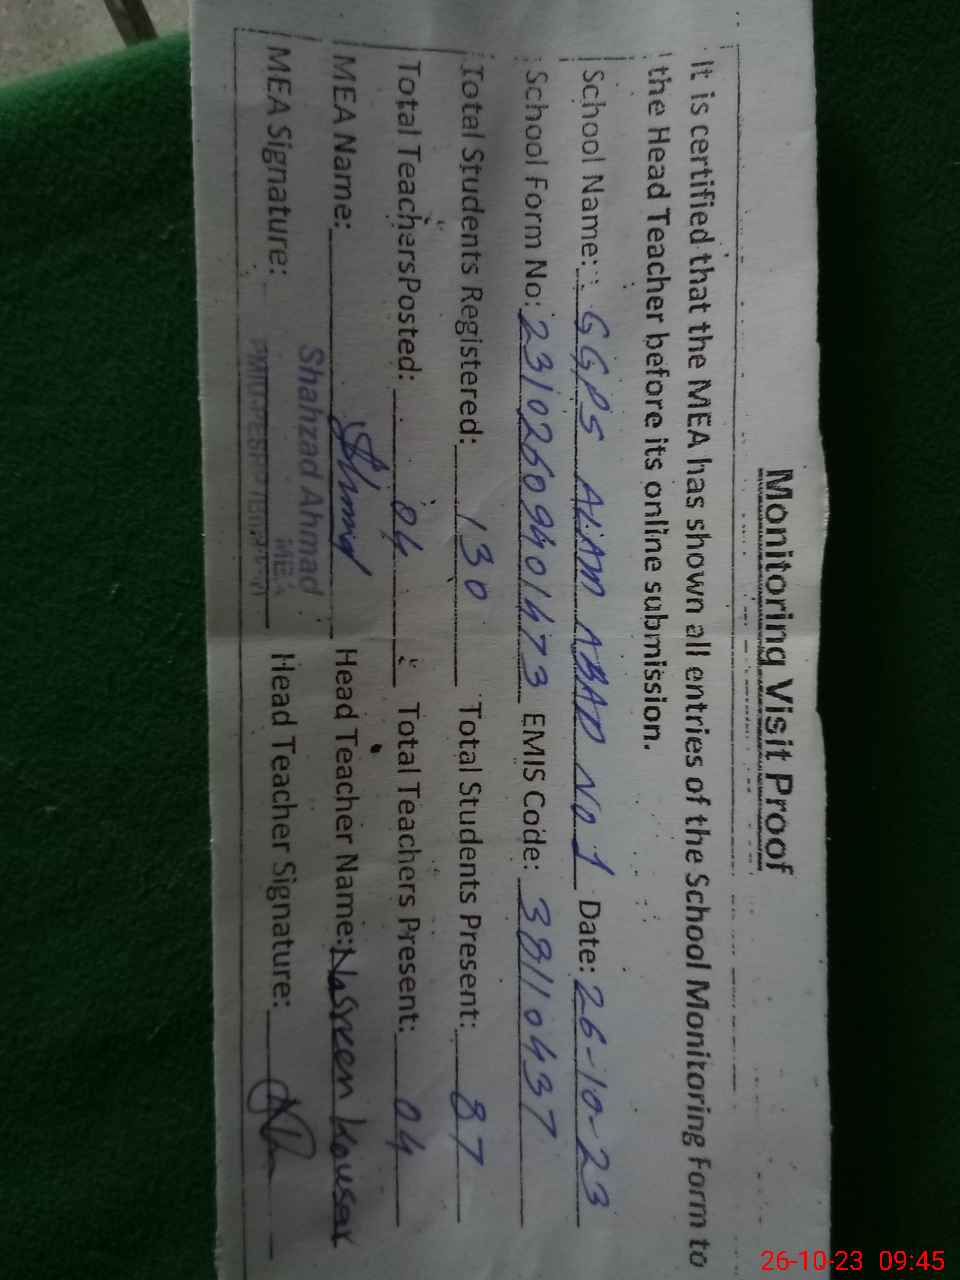 Monitoring Visit Proof
It is certified that the MEA has shown all entries of the School Monitoring Form to
the Head Teacher before its online submission.
School Name: GGPS ALAM ABAD NO 1 Date: 26-10-23
School Form No: 23102609401473 EMIS Code: 38110437
Total Students Registered: 130 Total Students Present: 87
Total TeachersPosted: 04 Total Teachers Present: 04
MEA Name: Head Teacher Name: Nasreen Kousar
MEA Signature: Head Teacher Signature:
Shahzad Ahmad
MEA
26-10-23 09:45